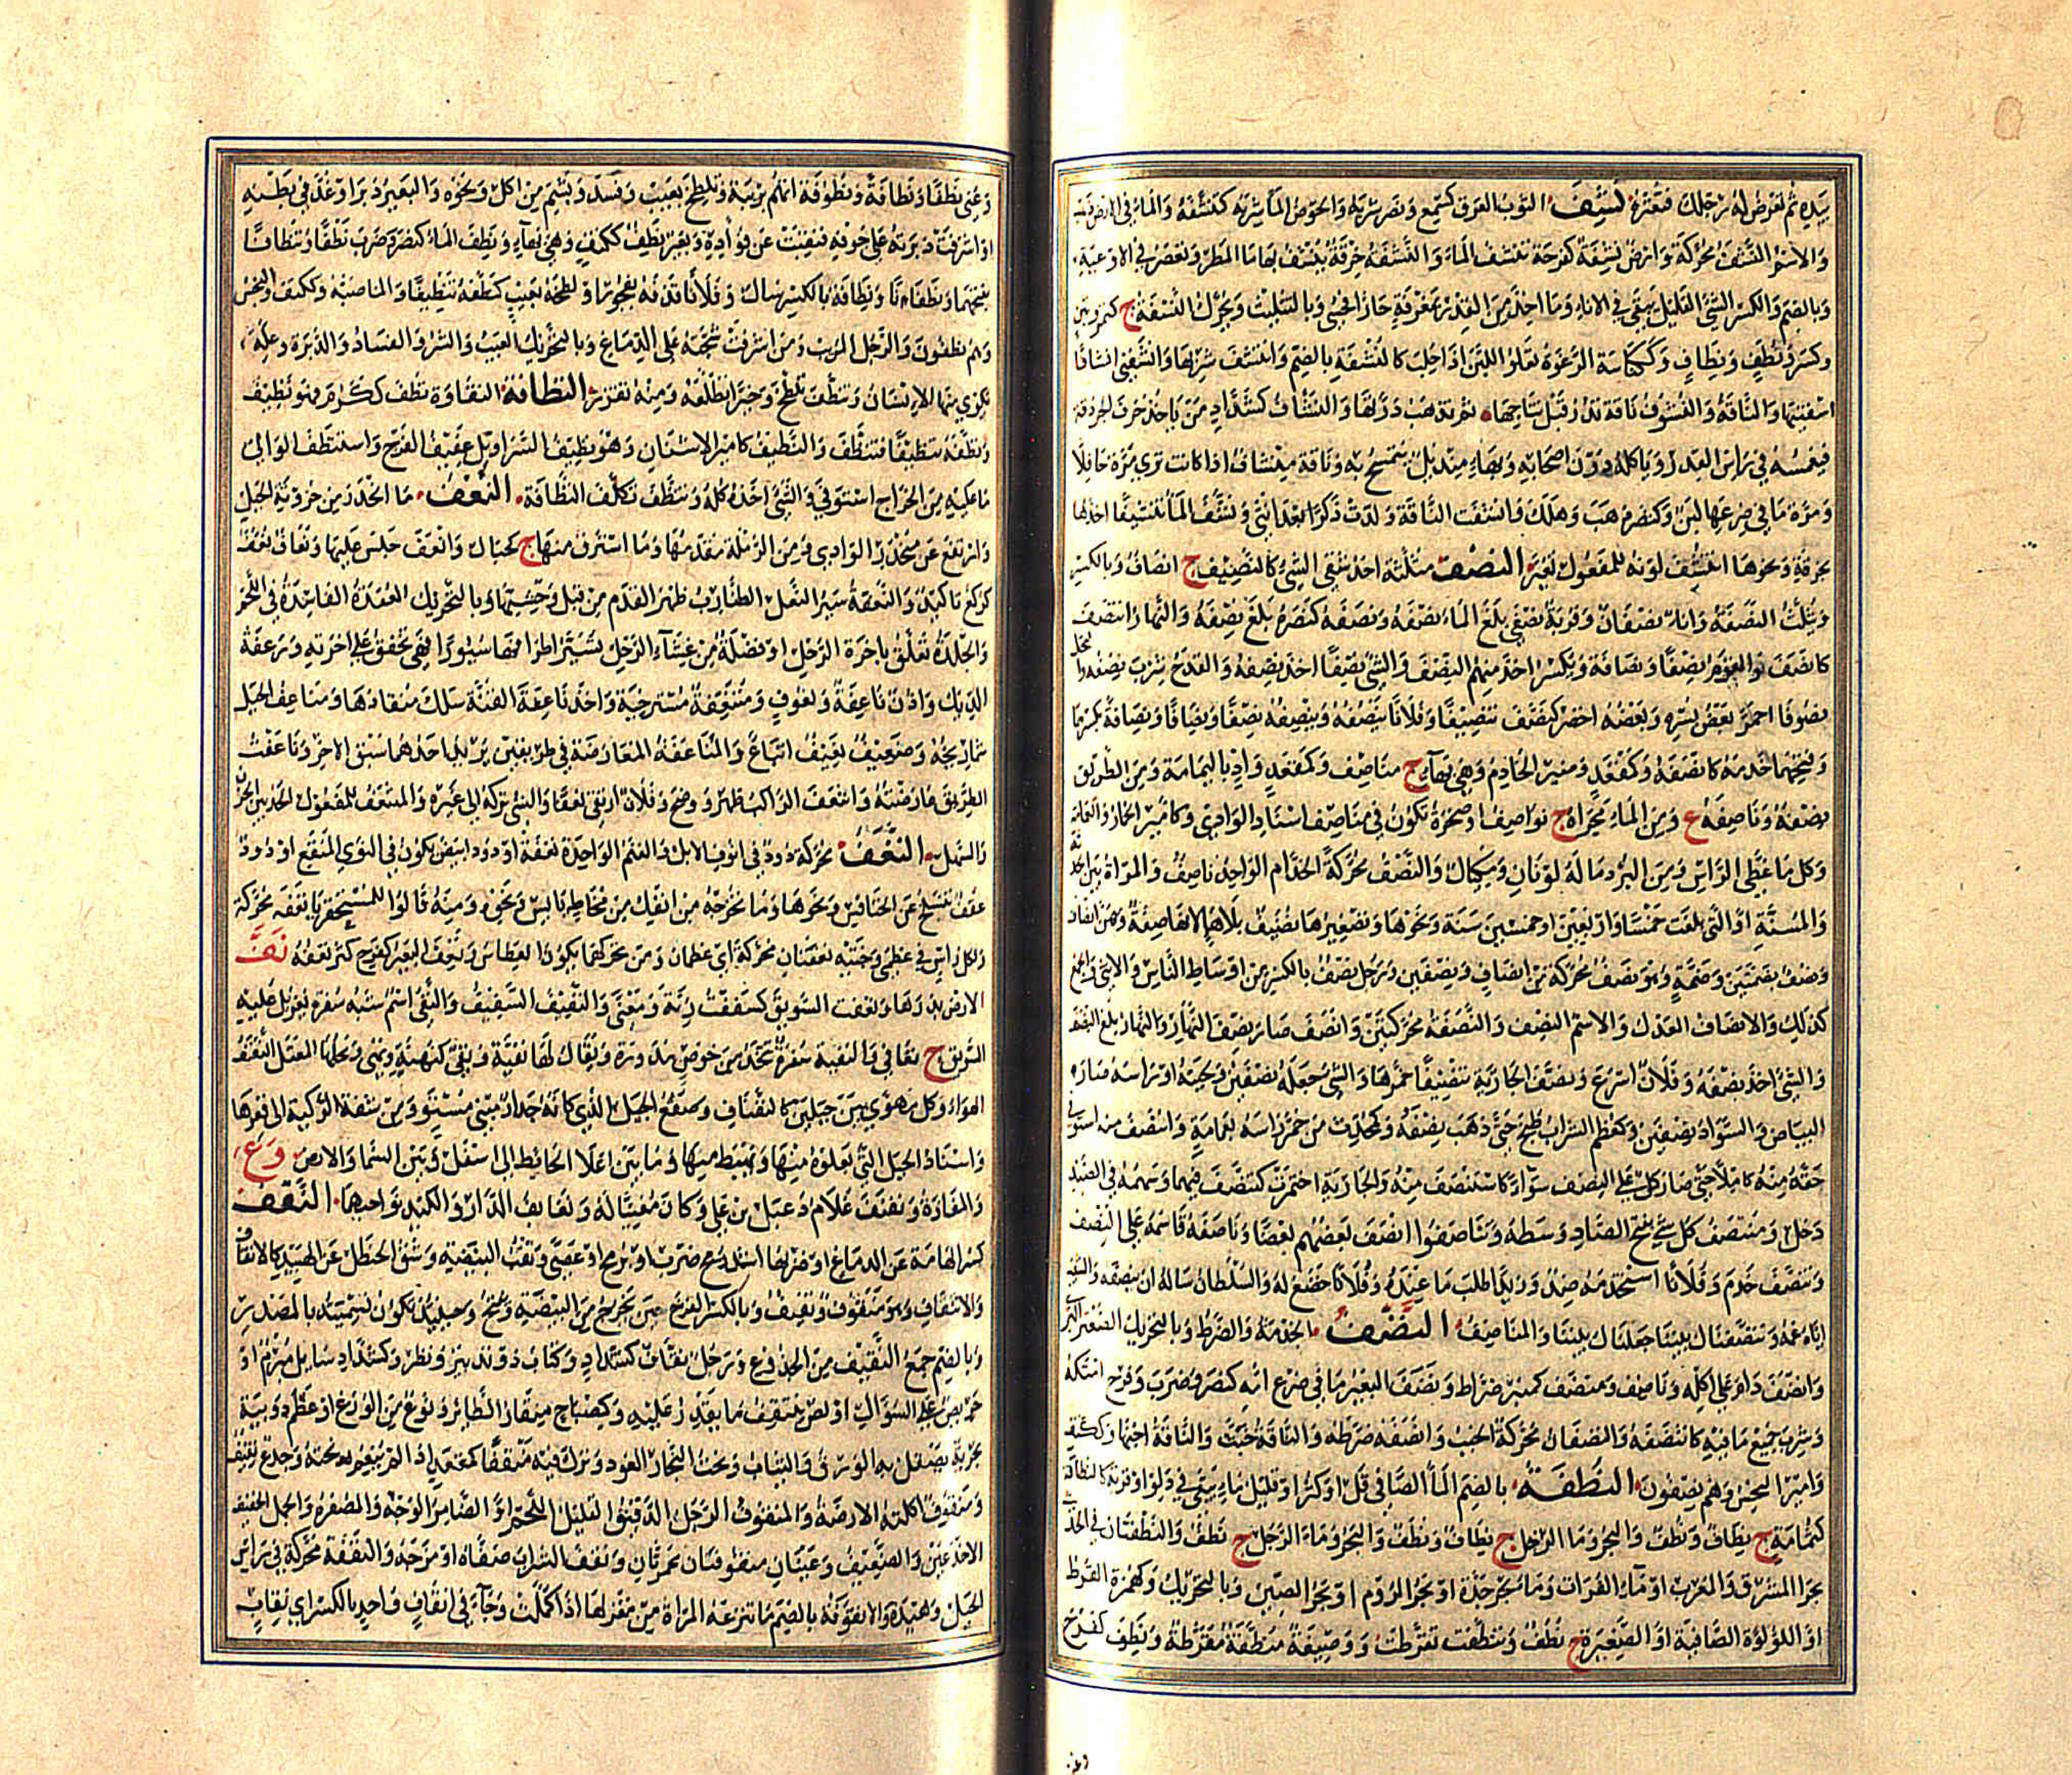 بيده ثم تعرض له رجلك فتعثره نشف الثوب العرق كسمع ونصر شربه والحوض الماء شربه كتنشفه والماء في الارض ذهب
والاسم النشف محركة وارض نشفة كفرحة تنشف الماء والنشفة خرقة ينشف بها ماء المطر وتعصر في الاوعية
وبالضم والكسر الشئ القليل يبقى في الاناء وما اخذ من القدر بمغرفة حارا فحسي وبالتثليث ويحرك النشفة ج كتمر وتين
وكسر ونطف ونطاف وككناسة الرغوة تعلو اللبن اذا حلب كالنشفة بالضم وانتشف شربها وانشفني انشافا
اسقنيها والناقة والنشوف ناقة تدر قبل نتاجها ثم يذهب درها والنشاف كشداد من ياخذ حرف الجردقة
فيغمسه في راس القدر وياكله دون اصحابه وبهاء منديل يتمسح به وناقة منشاف اذا كانت ترى مرة حافلا
ومرة ما في ضرعها لبن وكنصر ذهب وهلك وانشفت الناقة ولدت ذكرا بعد انثى ونشف الماء تنشيفا اخذه
بخرقة ونحوها انتشف لونه للمفعول تغير النصف مثلثة احد شقي الشئ كالنصيف ج انصاف وبالكسر
ويثلث النصفة واناء نصفان وقربة نصفى بلغ الماء نصفه ونصفه كنصره بلغ نصفه والنهار انتصف
كانصف والقوم نصفا ونصافة ويكسر اخذ منهم النصف والشئ نصفا اخذ نصفه والقدح شرب نصفه والنخل
نصوفا احمر بعض بسره وبعضه اخضر كنصف تنصيفا وفلانا ينصفه وينصفه نصفا ونصافا ونصافة بكسرهما
وفتحهما خدمه كانصفه وكمقعد ومنبر الخادم وهي بهاء ج مناصف وكمقعد واد باليمامة ومن الطريق
نصفه وناصفة ع ومن الماء مجراه ج نواصف او صخرة تكون في مناصف اسناد الوادي وكامير الخمار والعمامة
وكل ما غطى الراس ومن البرد ما له لونان ومكيال والنصف محركة الخدام الواحد ناصف والمراة بين الحدثة
والمسنة او التي بلغت خمسا واربعين او خمسين سنة ونحوها وتصغيرها نصيف بلا هاء لانها صفة وهن انصاف
ونصف بضمتين وبضمة وهو نصف محركة من انصاف ونصفين ورجل نصف بالكسر من اوساط الناس والانثى والجمع
كذلك والانصاف العدل والاسم النصف والنصفة محركتين وانصف صار نصف النهار والنهار بلغ النصف
والشئ اخذ نصفه وفلان اسرع ونصف الجارية تنصيفا خمرها والشئ جعله نصفين ولحيته او راسه صار
البياض والسواد نصفين وكمعظم الشراب طبخ حتى ذهب نصفه وكمحدث من خمر راسه بعمامة وانتصف منه استوفى
حقه منه كاملا حتى صار كل على النصف سواء كاستنصف منه والجارية اختمرت كتنصف فيهما وسهمه في الصيد
دخل ومنتصف كل شئ بفتح الصاد وسطه وتناصفوا انصف بعضهم بعضا وناصفه قاسمه على النصف
وتنصف خدم وفلانا استخدمه ضد وزيدا طلب ما عنده وفلانا خضع له والسلطان ساله ان ينصفه والشيب
اياه عمه وتنصفناك بيننا جعلناك بيننا والمناصف النضف الخدمة والضرط وبالتحريك الصعتر البري
وانضف دام على اكله وناضف ومنضف كمنبر ضراط ونضف البعير ما في ضرع امه كنصر وضرب وفرح امتكه
وشرب جميع ما فيه كانتضفه والنضفان محركة الخبب وانضفه ضرطه والناقة خبت والناقة اخبها وككتف
وامير النجس وهم نضفون النطفة بالضم الماء الصافي قل او كثر او قليل ماء يبقى في دلو او قربة كالنطافة
كثمامة ج نطاف ونطف والبحر وماء الرجل ج نطاف ونطف والبحر وماء الرجل ج نطف والنطفتان في الحديث
بحرا المشرق والمغرب او ماء الفرات وماء بحر جدة او بحر الروم او بحر الصين وبالتحريك وكهمزة القرط
او اللؤلؤة الصافية او الصغيرة ج نطف وتنطفت تقرطت ووصيفة منطفة مقرطة ونطف كفرح
وعني نطفا ونطافة ونطوفة اتهم بريبة وتلطخ بعيب وفسد وبشم من اكل ونحوه والبعير دبر او اغد في بطنه
او اشرفت دبرته على جوفه فنقبت عن فؤاده وبعير نطف ككتف وهي بهاء ونطف الماء كنصر وضرب نطفا وتنطافا
بفتحهما ونطفانا ونطافة بالكسر سال وفلانا قذفه بفجور او لطخه بعيب كنطفه تنطيفا والماء صبه وككتف النجس
وهم نطفون والرجل المريب ومن اشرفت شجته على الدماغ وبالتحريك العيب والشر والفساد والدبرة وعلة
يكوى منها الانسان وتنطف تلطخ وخبرا تطلعه ومنه تقزز النظافة النقاوة نظف ككرم فهو نظيف
ونظفه تنظيفا فتنظف والنظيف كامير الاشنان وهو نظيف السراويل عفيف الفرج واستنظف الوالي
ما عليه من الخراج استوفى والشئ اخذه كله وتنظف تكلف النظافة النعف ما انحدر من حزونة الجبل
وارتفع عن منحدر الوادي ومن الرملة مقدمها وما استرق منها ج كحبال وانعف جلس عليها ونعاف نعف
كركع تاكيد والنعفة سير النعل الضارب ظهر القدم من قبل وحشيتها وبالتحريك العقدة الفاسدة في اللحم
والجلدة تعلق باخرة الرحل او فضلة من غشاء الرحل تسير اطرافها سيورا فهي تخفق على اخرته ورعفة
الديك واذن ناعفة ونعوف ومنتعفة مسترخية واخذ ناعفة القنة سلك منقادها ومناعف الجبل
شماريخه وضعيف نعيف اتباع والمناعفة المعارضة في طريقين يريد احدهما سبق الاخر وناعفت
الطريق عارضته وانتعف الراكب ظهر ووضح وفلان ارتقى نعفا والشئ تركه الى غيره والمنتعف للمفعول الحد بين الحزن
والسهل النغف محركة دود في انوف الابل والغنم الواحدة نغفة او دود ابيض يكون في النوى المنقع او دود
عقف تنسلخ عن الخنافس ونحوها وما تخرجه من انفك من مخاط يابس ونحوه ومنه قالوا للمستحقر يا نغفة محركة
ولكل راس في عظمي وجنتيه نغفتان محركة اي عظمان ومن تحركهما يكون العطاس ونغف البعير كفرح كثر نغفه نف
الارض بذرها ونففت السويق كسففت زنة ومعنى والنفيف السفيف والنفي اسم شبه سفرة يغربل عليه
السويق ج نفافي والنفية سفرة تتخذ من خوص مدورة ويقال لها نفية ونفى كنهية ونهى ومحلها المعتل النفنف
الهواء وكل مهوى بين جبلين كالنفناف وصقع الجبل الذي كانه جدار مبني مستو ومن شفة الركية الى قعرها
واسناد الجبل التي تعلوه منها وتهبط منها وما بين اعلى الحائط الى اسفل وبين السماء والارض وع
والمفازة ونفنف غلام دعبل بن علي وكان مغنيا له ونفانف الدار والكبد نواحيها النقف
كسر الهامة عن الدماغ او ضربها اشد ضرب او برمح او عصى وثقب البيضة وشق الحنظل عن الهبيد كالانقاف
والانتقاف وهو منقوف ونقيف وبالكسر الفرخ حين يخرج من البيضة ويفتح وحينئذ يكون تسميته بالمصدر
وبالضم جمع النقيف من الجذوع ورجل نقاف كشداد وكتاب ذو تدبير ونظر وكشداد سايل مبرم او
حريص على السؤال او لص ينتقف ما يقدر عليه وكمصباح منقار الطائر ونوع من الوزغ او عظم دويبة
بحرية يصقل به الورق والثياب ونحت النجار العود وترك فيه منقفا كمقعد اذا لم ينعم نحته وجذع نقيف
ومنقوف اكلته الارضة والمنقوف الرجل الدقيق القليل اللحم او الضامر الوجه والمصفره والجمل الخفيف
الاخدعين والضعيف وعينان منقوفتان محمرتان ونقف الشراب صفاه او مزجه والنقفة محركة في راس
الجبل وهيدة والانقوفة بالضم ما تنزعه المراة من مغزلها اذا كملت وجاء في انقاف واحد بالكسر اي نقاب
وعن